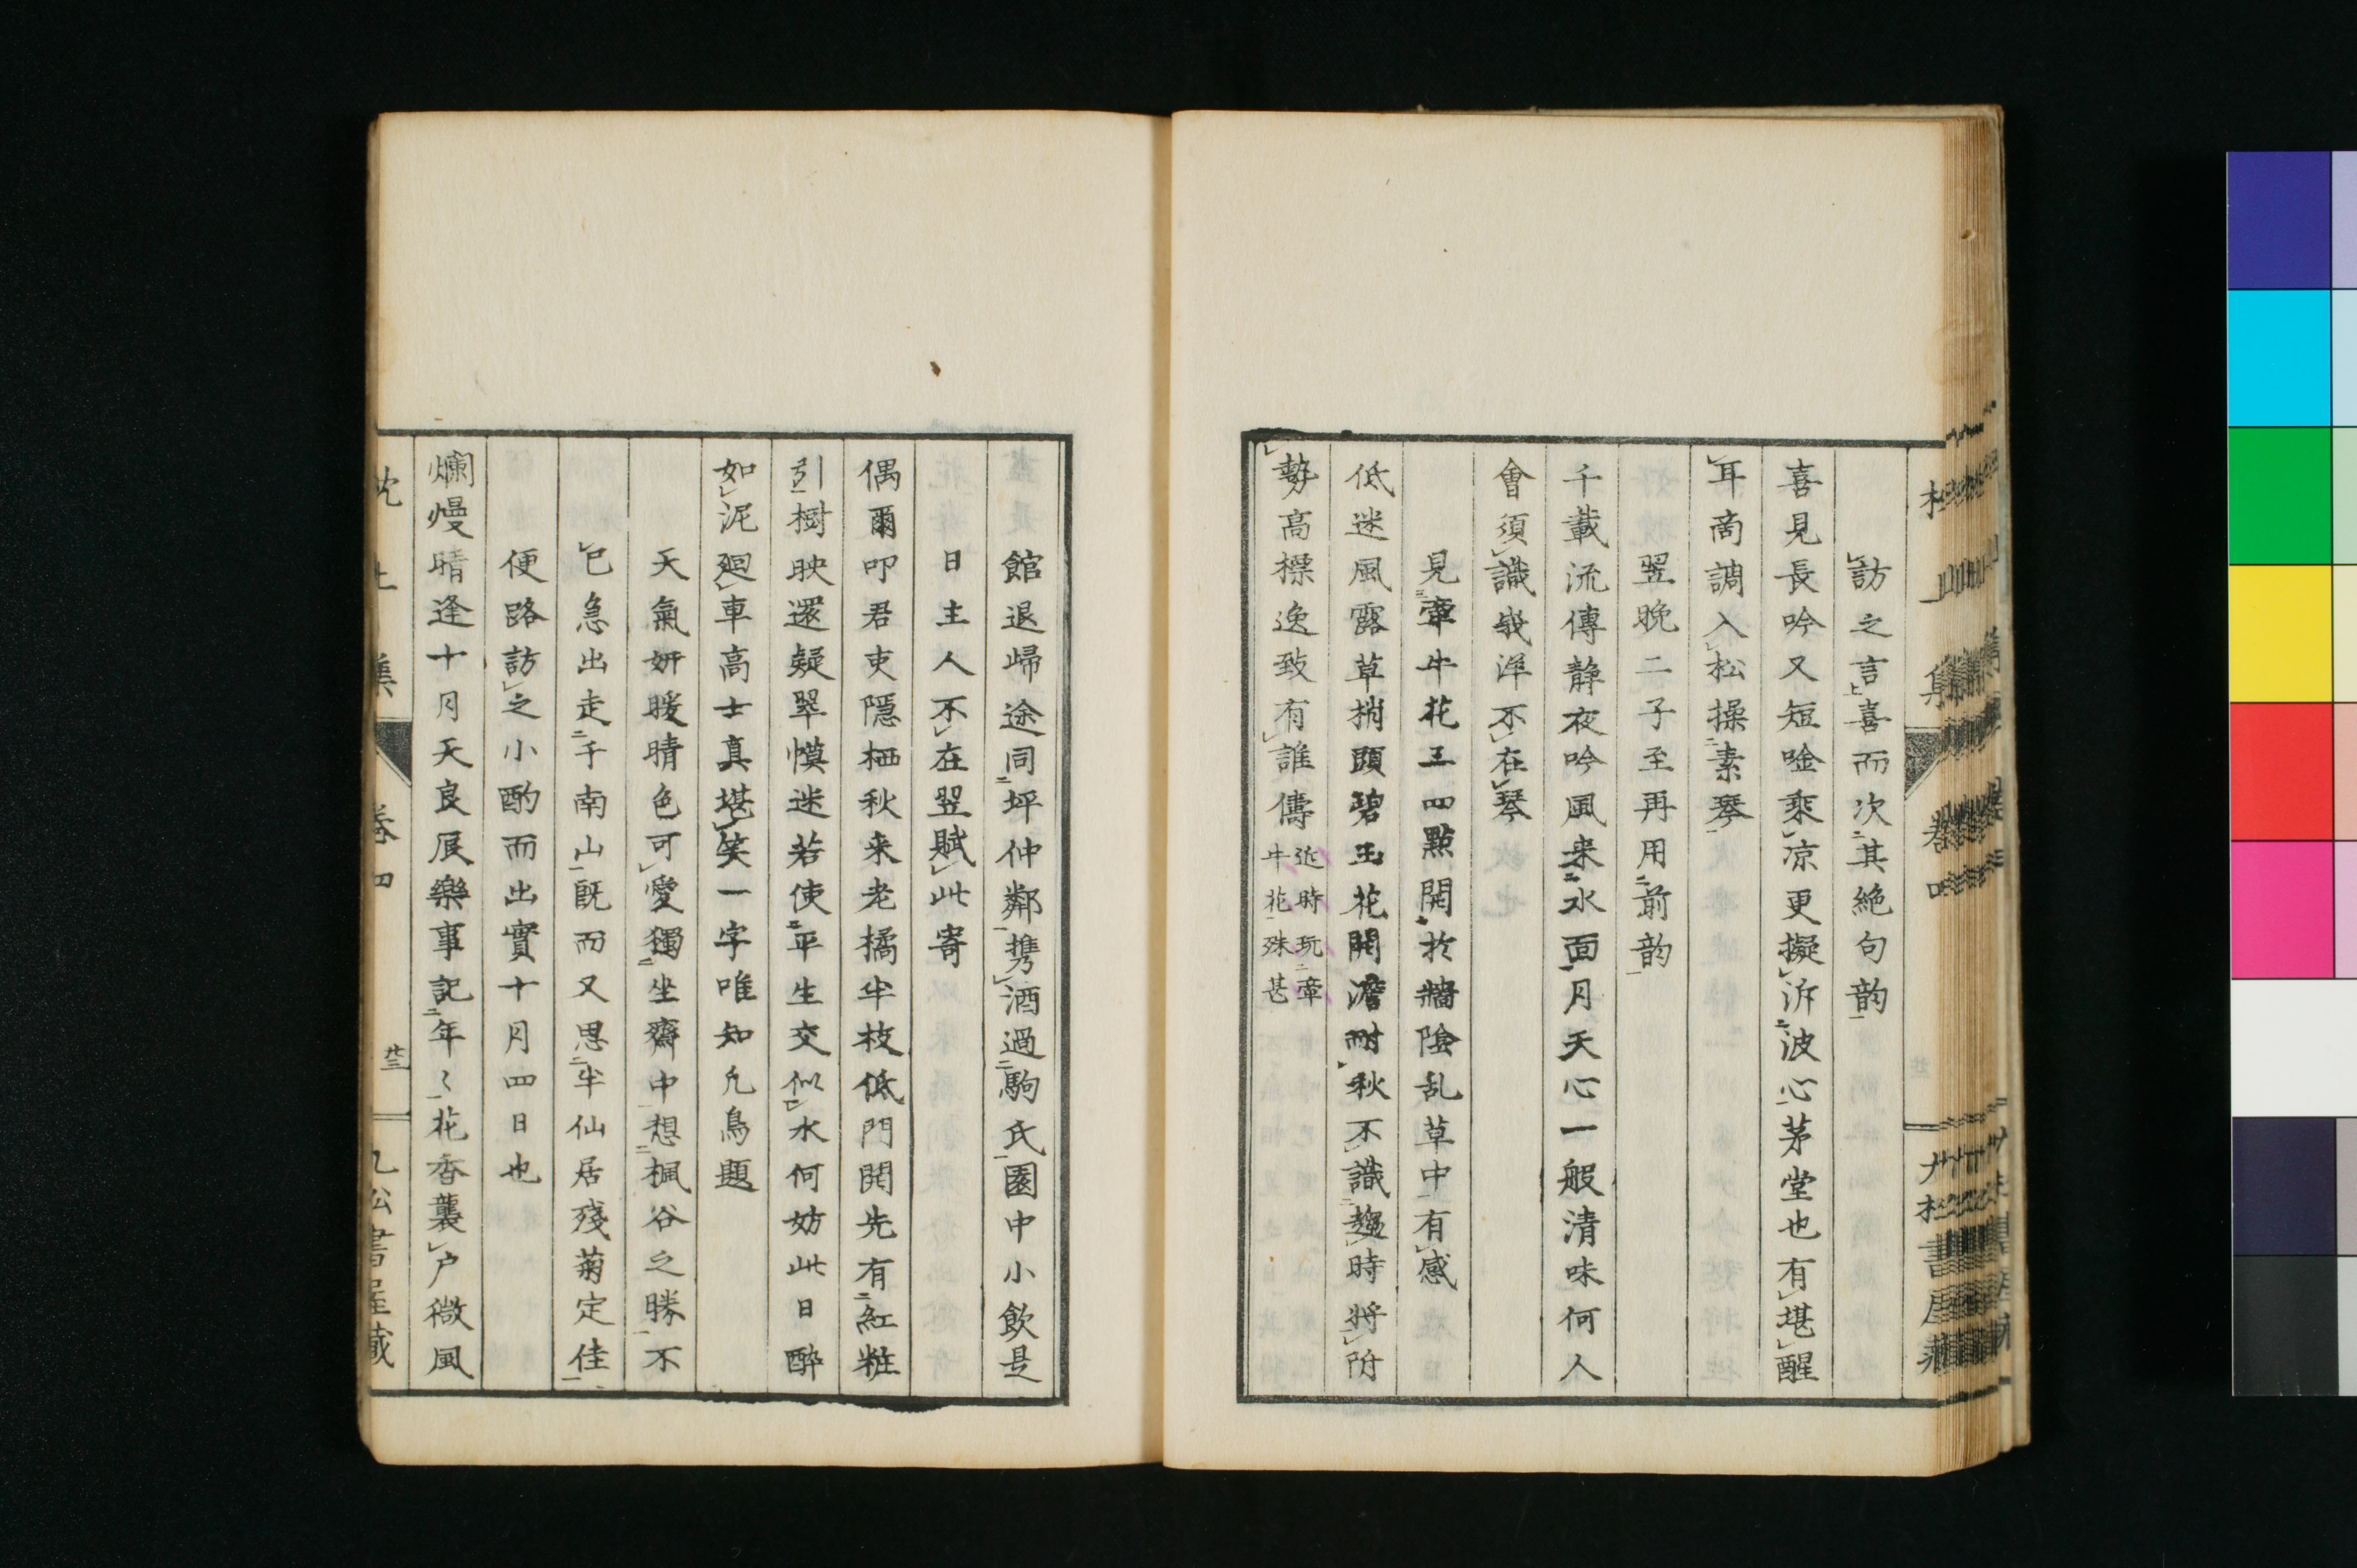 訪之言喜而次其絶句韵
喜見長吟又短唫乘凉更擬泝波心茅堂也有堪醒
耳啇調入松操素琴
翌晩二子至再用前韵
千載流傳静夜吟風来水面月天心一般清味何人
會須識峩洋不在琴
見牽牛花三四點開於牆陰乱草中有感
低迷風露草梢頭碧玉花開澹耐秋不識趨時將附
勢高標逸致有誰儔
近時玩牽
牛花殊甚
館退歸途同坪仲鄰携酒過駒氏園中小飲是
日主人不在翌賦此寄
偶爾叩君吏隠栖秋来老橘半枝低門開先有紅粧
引樹映還疑翠幙迷若使平生交似水何妨此日醉
如泥廻車高士真堪笑一字唯知凢鳥題
天氣妍暖晴色可愛獨坐齋中想楓谷之勝不
已急出走于南山既而又思半仙居殘菊定佳
便路訪之小酌而出實十月四日也
爛熳晴逢十月天良辰樂事記年〻花香襲户微風
卷四
廿三